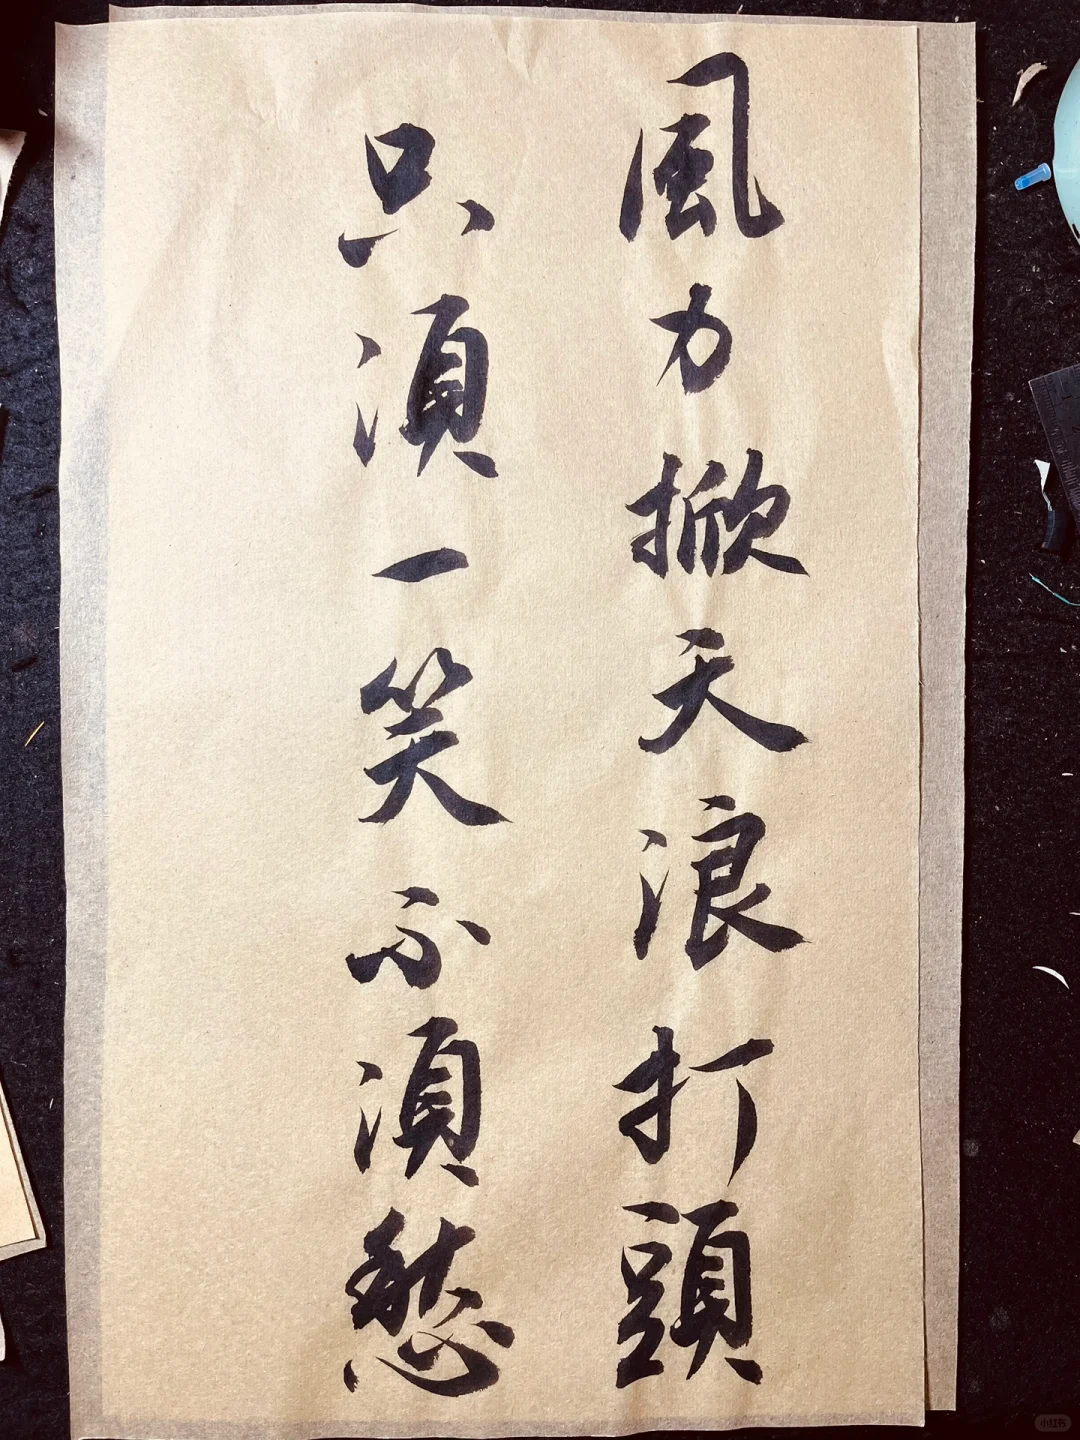 風力掀天浪打頭
只須一笑不須愁
小红书